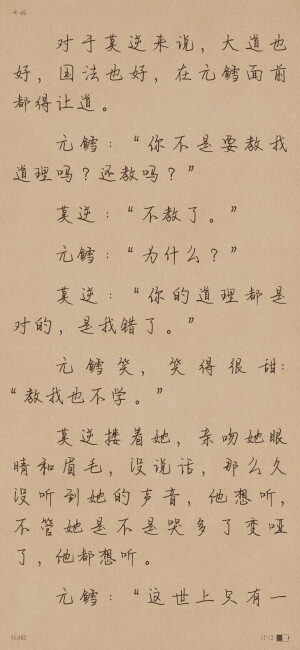 对于莫逆来说，大道也
好，国法也好，在元鳕面前
都得让道。
元鳕：“你不是要教我
道理吗？还教吗？”
莫逆：“不教了。”
元鳕：“为什么？”
莫逆：“你的道理都是
对的，是我错了。”
元鳕笑，笑得很甜：
“教我也不学。”
莫逆搂着她，亲吻她眼
睛和眉毛，没说话，那么久
没听到她的声音，他想听，
不管她是不是哭多了变哑
了，他都想听。
元鳕：“这世上只有一